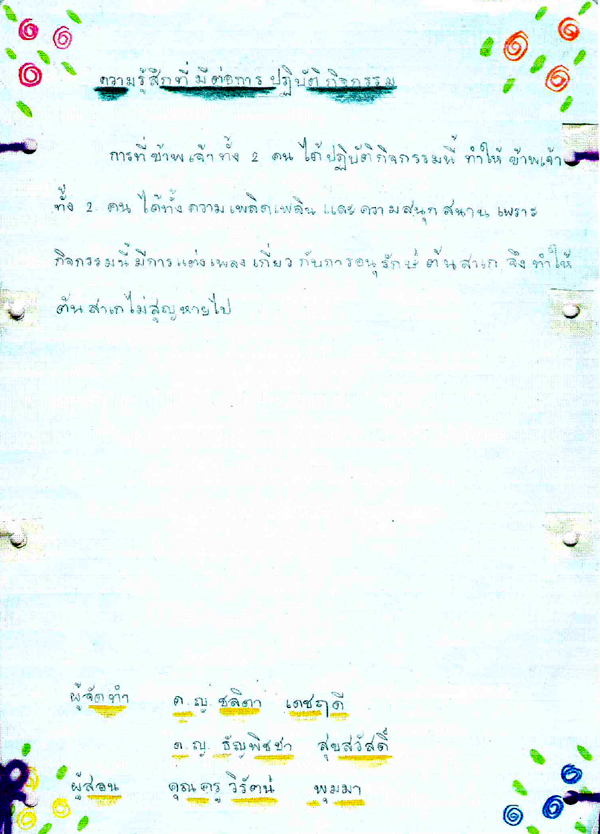 ความรู้สึกที่มีต่อการปฏิบัติกิจกรรม
การที่ข้าพเจ้าทั้ง 2 คน ได้ปฏิบัติกิจกรรมนี้ ทำให้ ข้าพเจ้า
ทั้ง 2 คน ได้ทั้งความเพลิดเพลิน และความสนุกสนาน เพราะ
กิจกรรมนี้มีการแต่งเพลงเกี่ยวกับการอนุรักษ์ต้นสาเก จึงทำให้
ต้นสาเกไม่สูญหายไป
ผู้จัดทำ ด.ญ. ชลิตา เดชฤดี
ด.ญ. ธัญพิชชา สุขสวัสดิ์
ผู้สอน คุณครู วิรัตน์ พุมมา